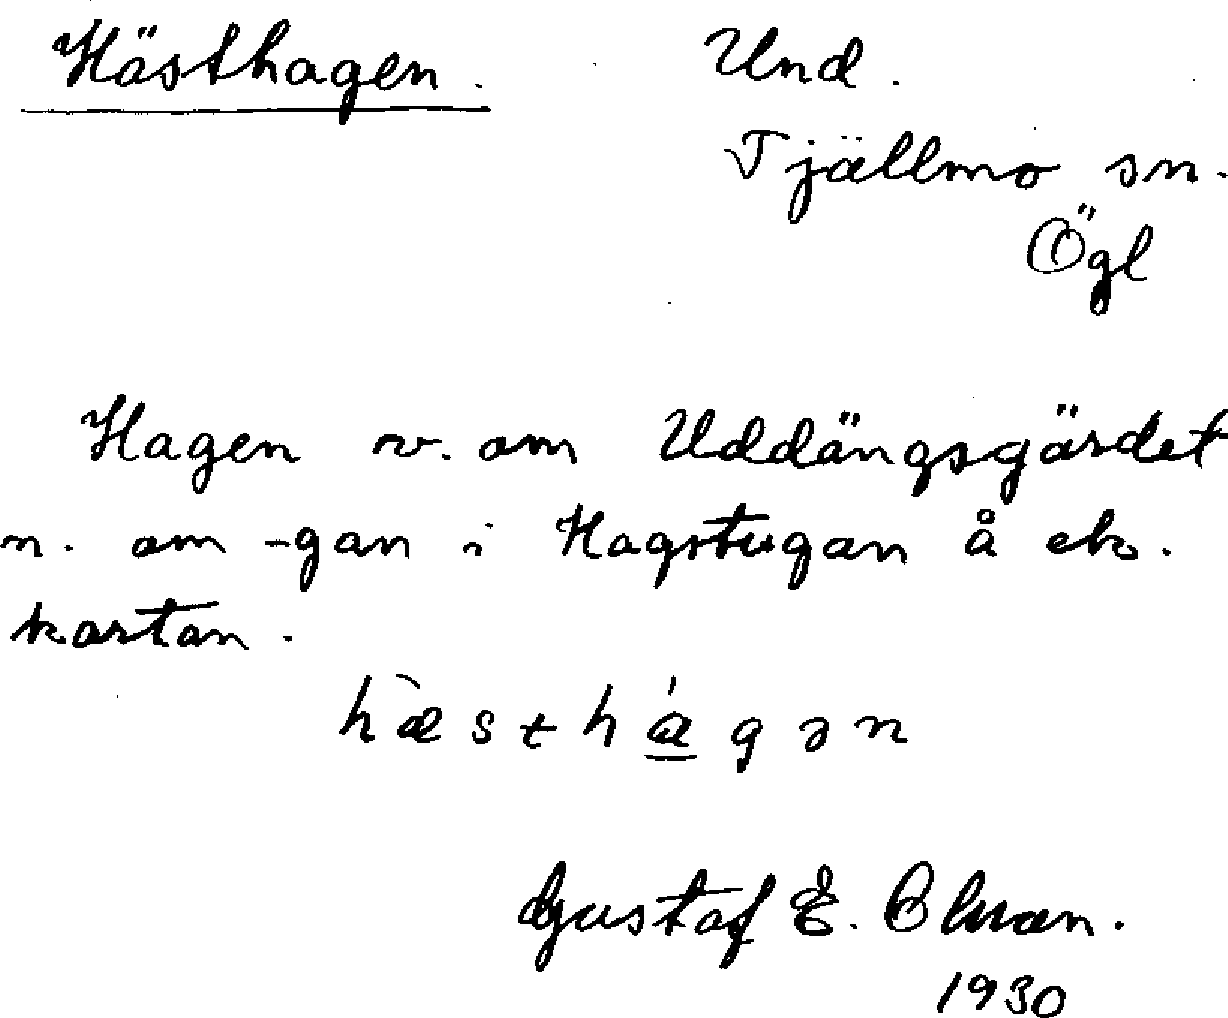 Hästhagen. Und.
Tjällmo sn.
Ögl
Hagen v. om Uddängsgärdet
n. om -gan i Hagstugan å ek.
kartan.
hæsthágən
Gustaf E.
1930